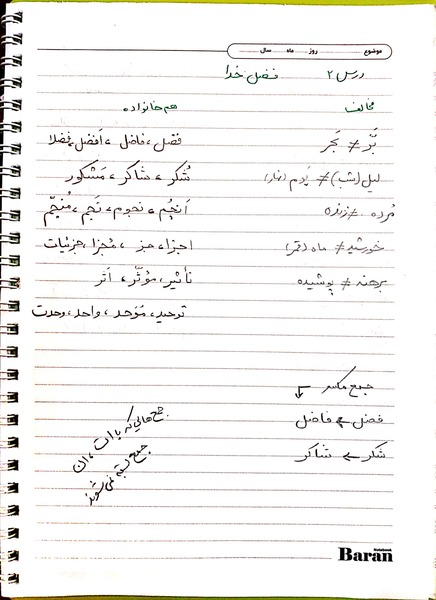 موضوع روز ماه سال
درس ۲ فضل خدا
مخالف هم خانواده
بَّر ≠ بَحر فضل، فاضل، اَفضل، فضلا
لیل (شب) ≠ یَوم (نهار) شُکر، شاکر، مَشکور
مُرده ≠ زنده اَنجُم، نجوم، نَجم، مُنَجِّم
خورشید ≠ ماه (قمر) اجزا، جز، مُجزا، جزئیات
برهنه ≠ پوشیده تأثیر، مؤثّر، اَثر
توحید، مُوَحد، واحد، وحدت
جمع مکسر
فضل ← فاضل
شکر ← شاکر
جمع هایی که با ات، ان
جمع بسته نمی شوند
Notebook
Baran